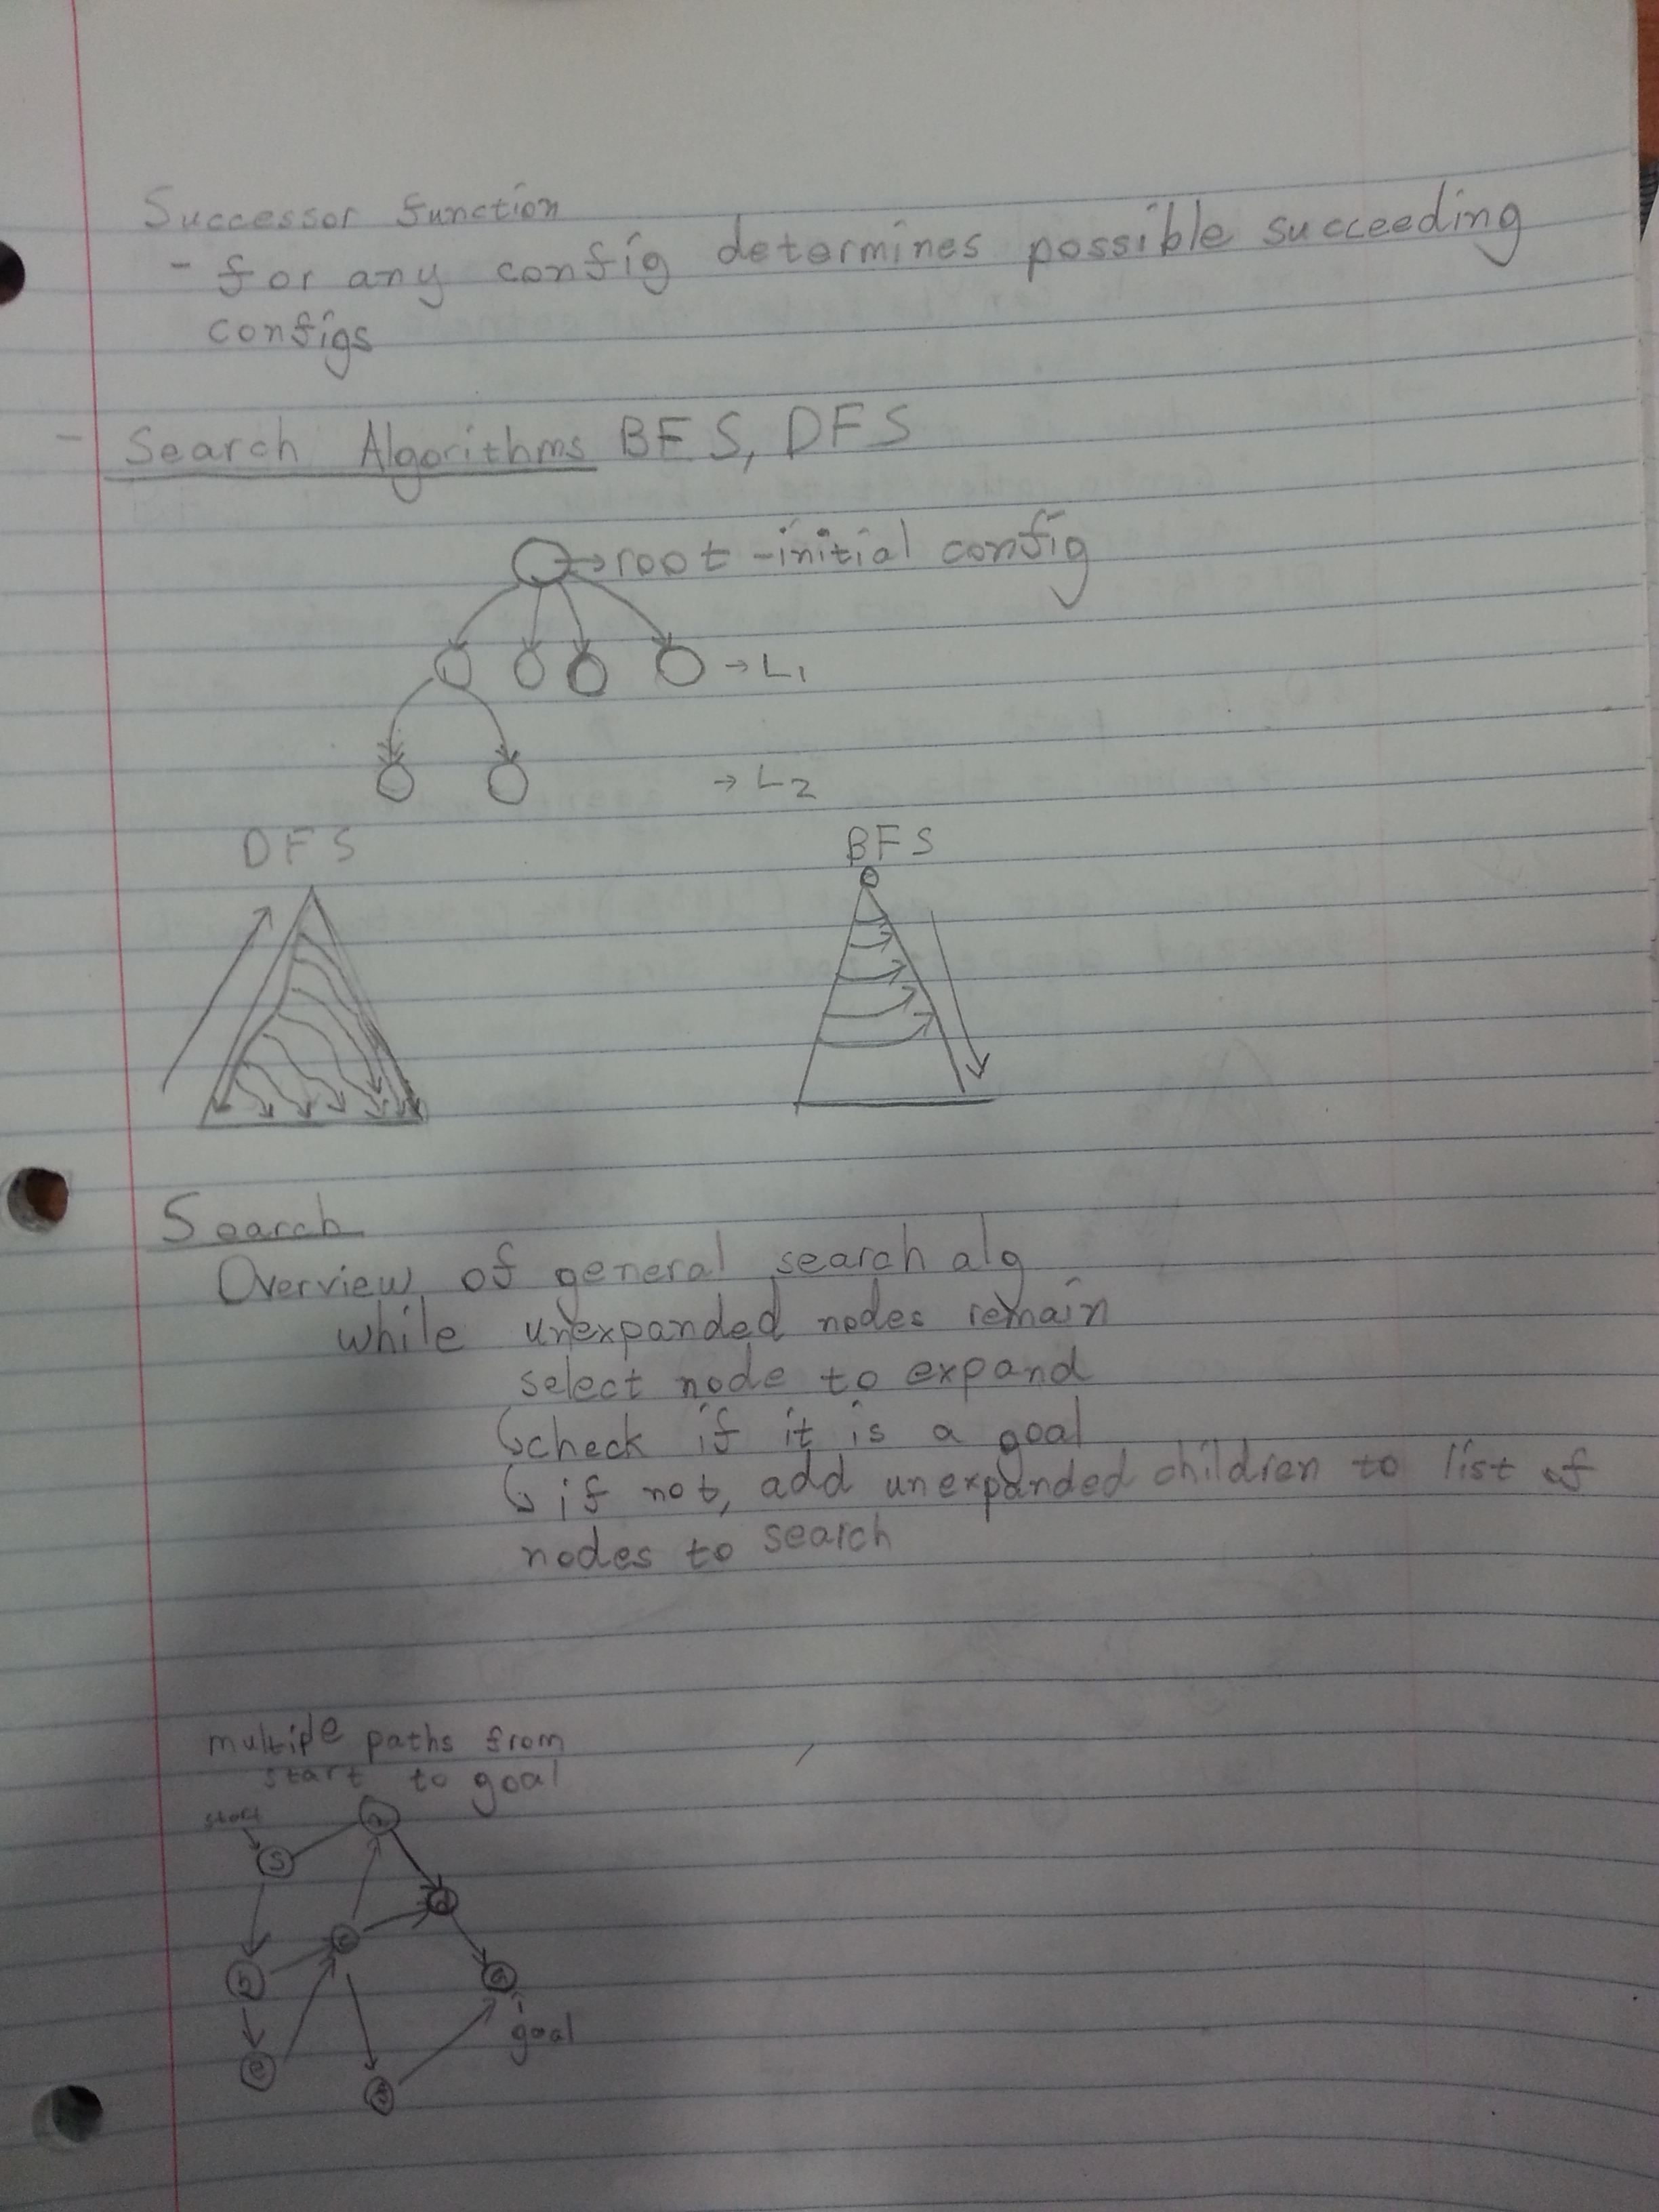 Successor function
- for any config determines possible succeeding
configs
- Search Algorithms BFS, DFS
→ root - initial config
→ L1
→ L2
DFS
BFS
Search
Overview of general search alg
while unexpanded nodes remain
select node to expand
↳ check if it is a goal
↳ if not, add unexpanded children to list of
nodes to search
multiple paths from
start to goal
start
S
d
c
b
G
goal
e